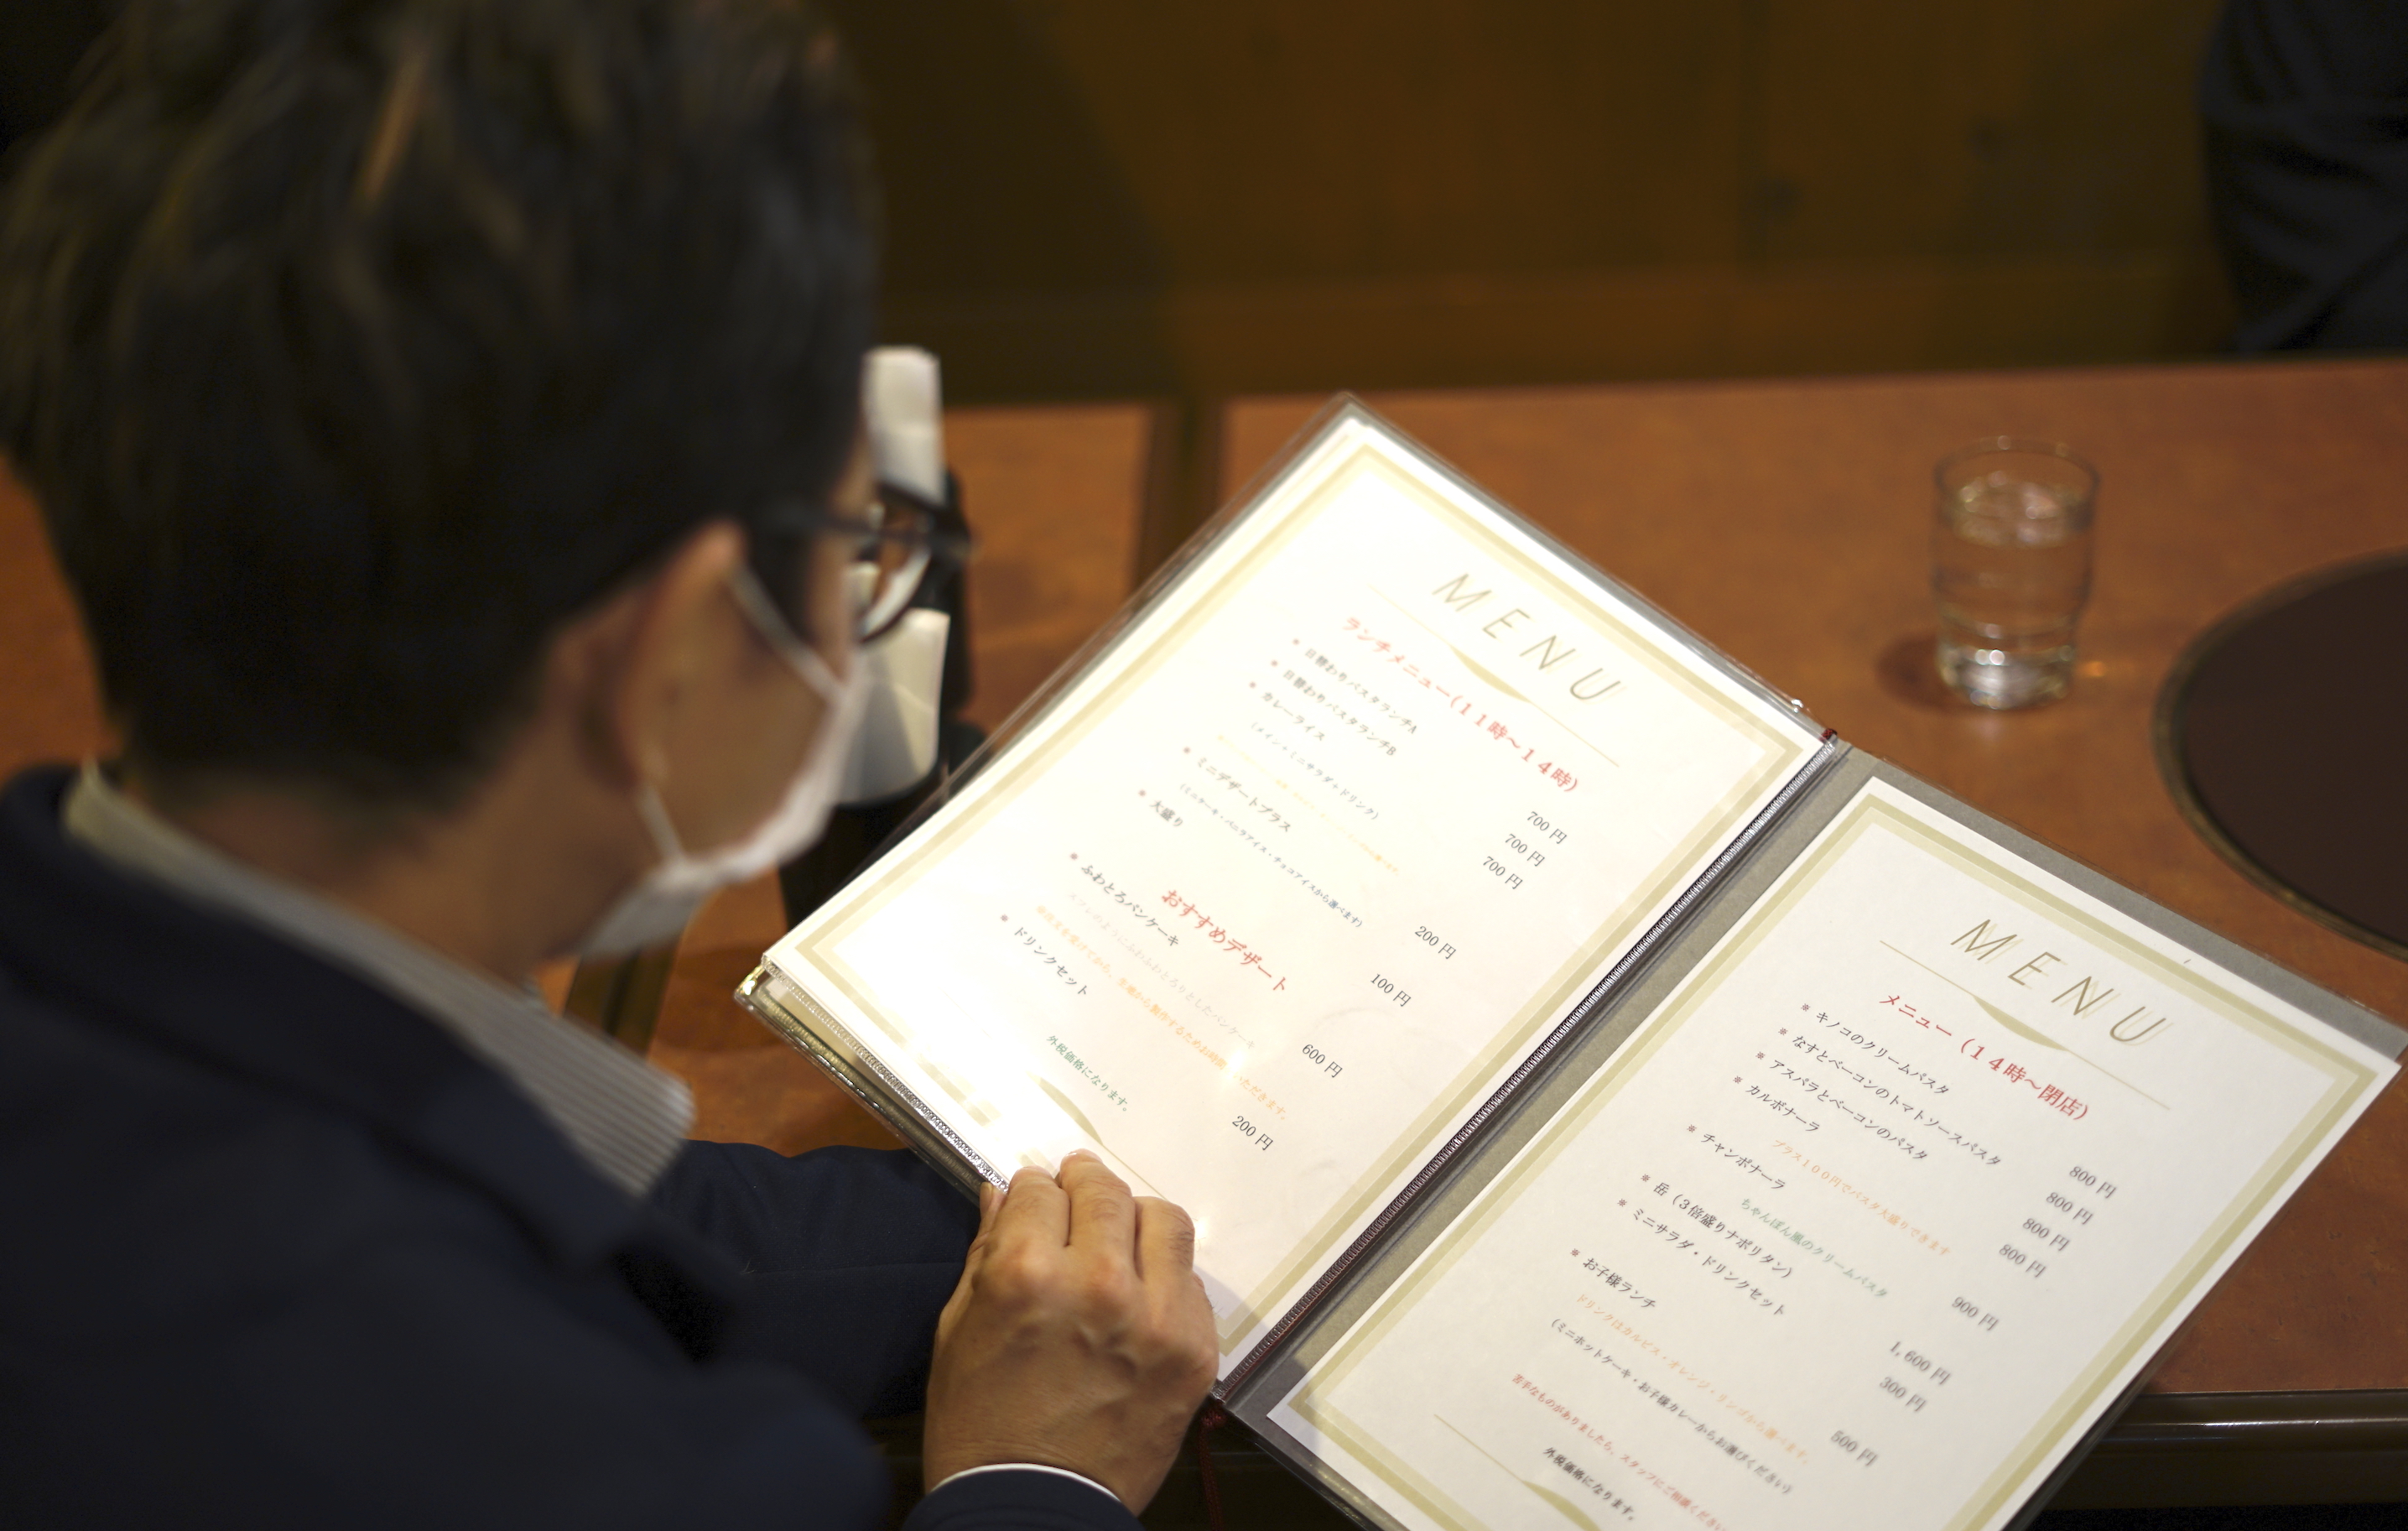 MENU
ランチメニュー(11時～14時)
※ 日替わりパスタランチA 700 円
※ 日替わりパスタランチB 700 円
※ カレーライス 700 円
(メイン+ミニサラダ+ドリンク)
※ ミニデザートプラス 200 円
(ミニケーキ・バニラアイス・チョコアイスから選べます)
※ 大盛り 100 円
おすすめデザート
※ ふわとろパンケーキ 600 円
スフレのようにふわふわとろりとしたパンケーキ
御注文を受けてから、生地から製作するためお時間いただきます。
※ ドリンクセット 200 円
外税価格になります。
MENU
メニュー (14時～閉店)
※ キノコのクリームパスタ 800 円
※ なすとベーコンのトマトソースパスタ 800 円
※ アスパラとベーコンのパスタ 800 円
※ カルボナーラ 800 円
プラス100円でパスタ大盛りできます
※ チャンポナーラ 900 円
ちゃんぽん風のクリームパスタ
※ 岳 (3倍盛りナポリタン) 1,600 円
※ ミニサラダ・ドリンクセット 300 円
※ お子様ランチ 500 円
ドリンクはカルピス・オレンジ・リンゴから選べます。
(ミニホットケーキ・お子様カレーからお選びください)
苦手なものがありましたら、スタッフにご相談くださ
外税価格になります。